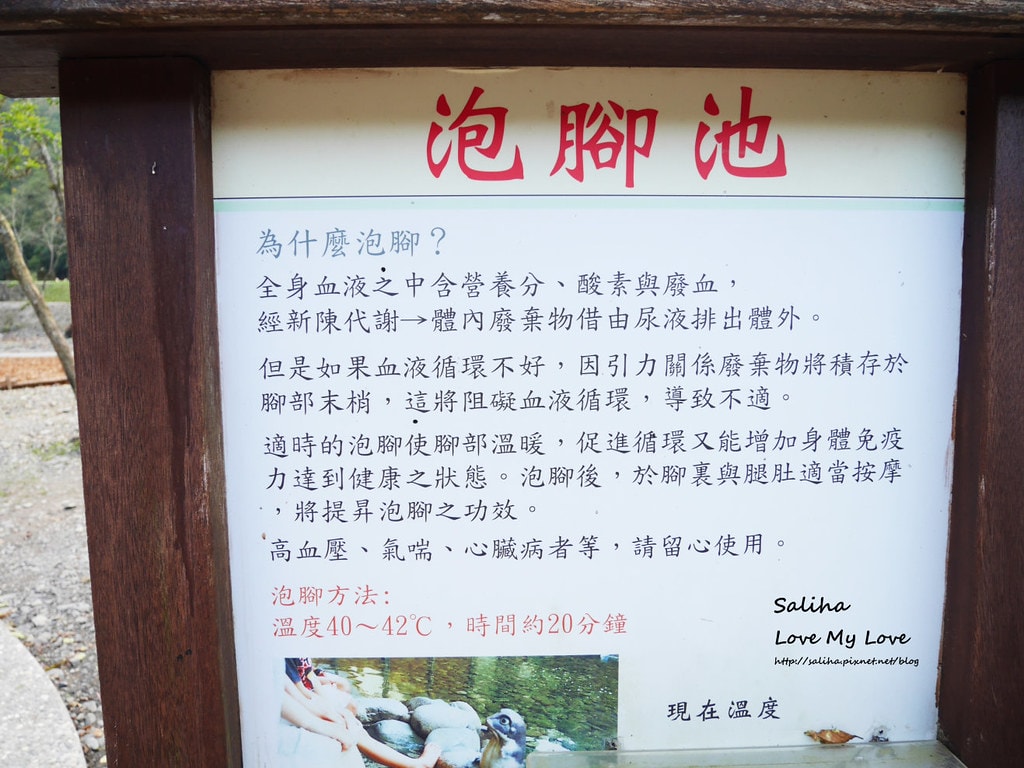 泡腳池
為什麼泡腳？
全身血液之中含營養分、酸素與廢血，
經新陳代謝→體內廢棄物借由尿液排出體外。
但是如果血液循環不好，因引力關係廢棄物將積存於
腳部末梢，這將阻礙血液循環，導致不適。
適時的泡腳使腳部溫暖，促進循環又能增加身體免疫
力達到健康之狀態。泡腳後，於腳裏與腿肚適當按摩
，將提昇泡腳之功效。
高血壓、氣喘、心臟病者等，請留心使用。
泡腳方法:
溫度40～42℃，時間約20分鐘
Saliha
Love My Love
http://saliha.pixnet.net/blog
現在溫度